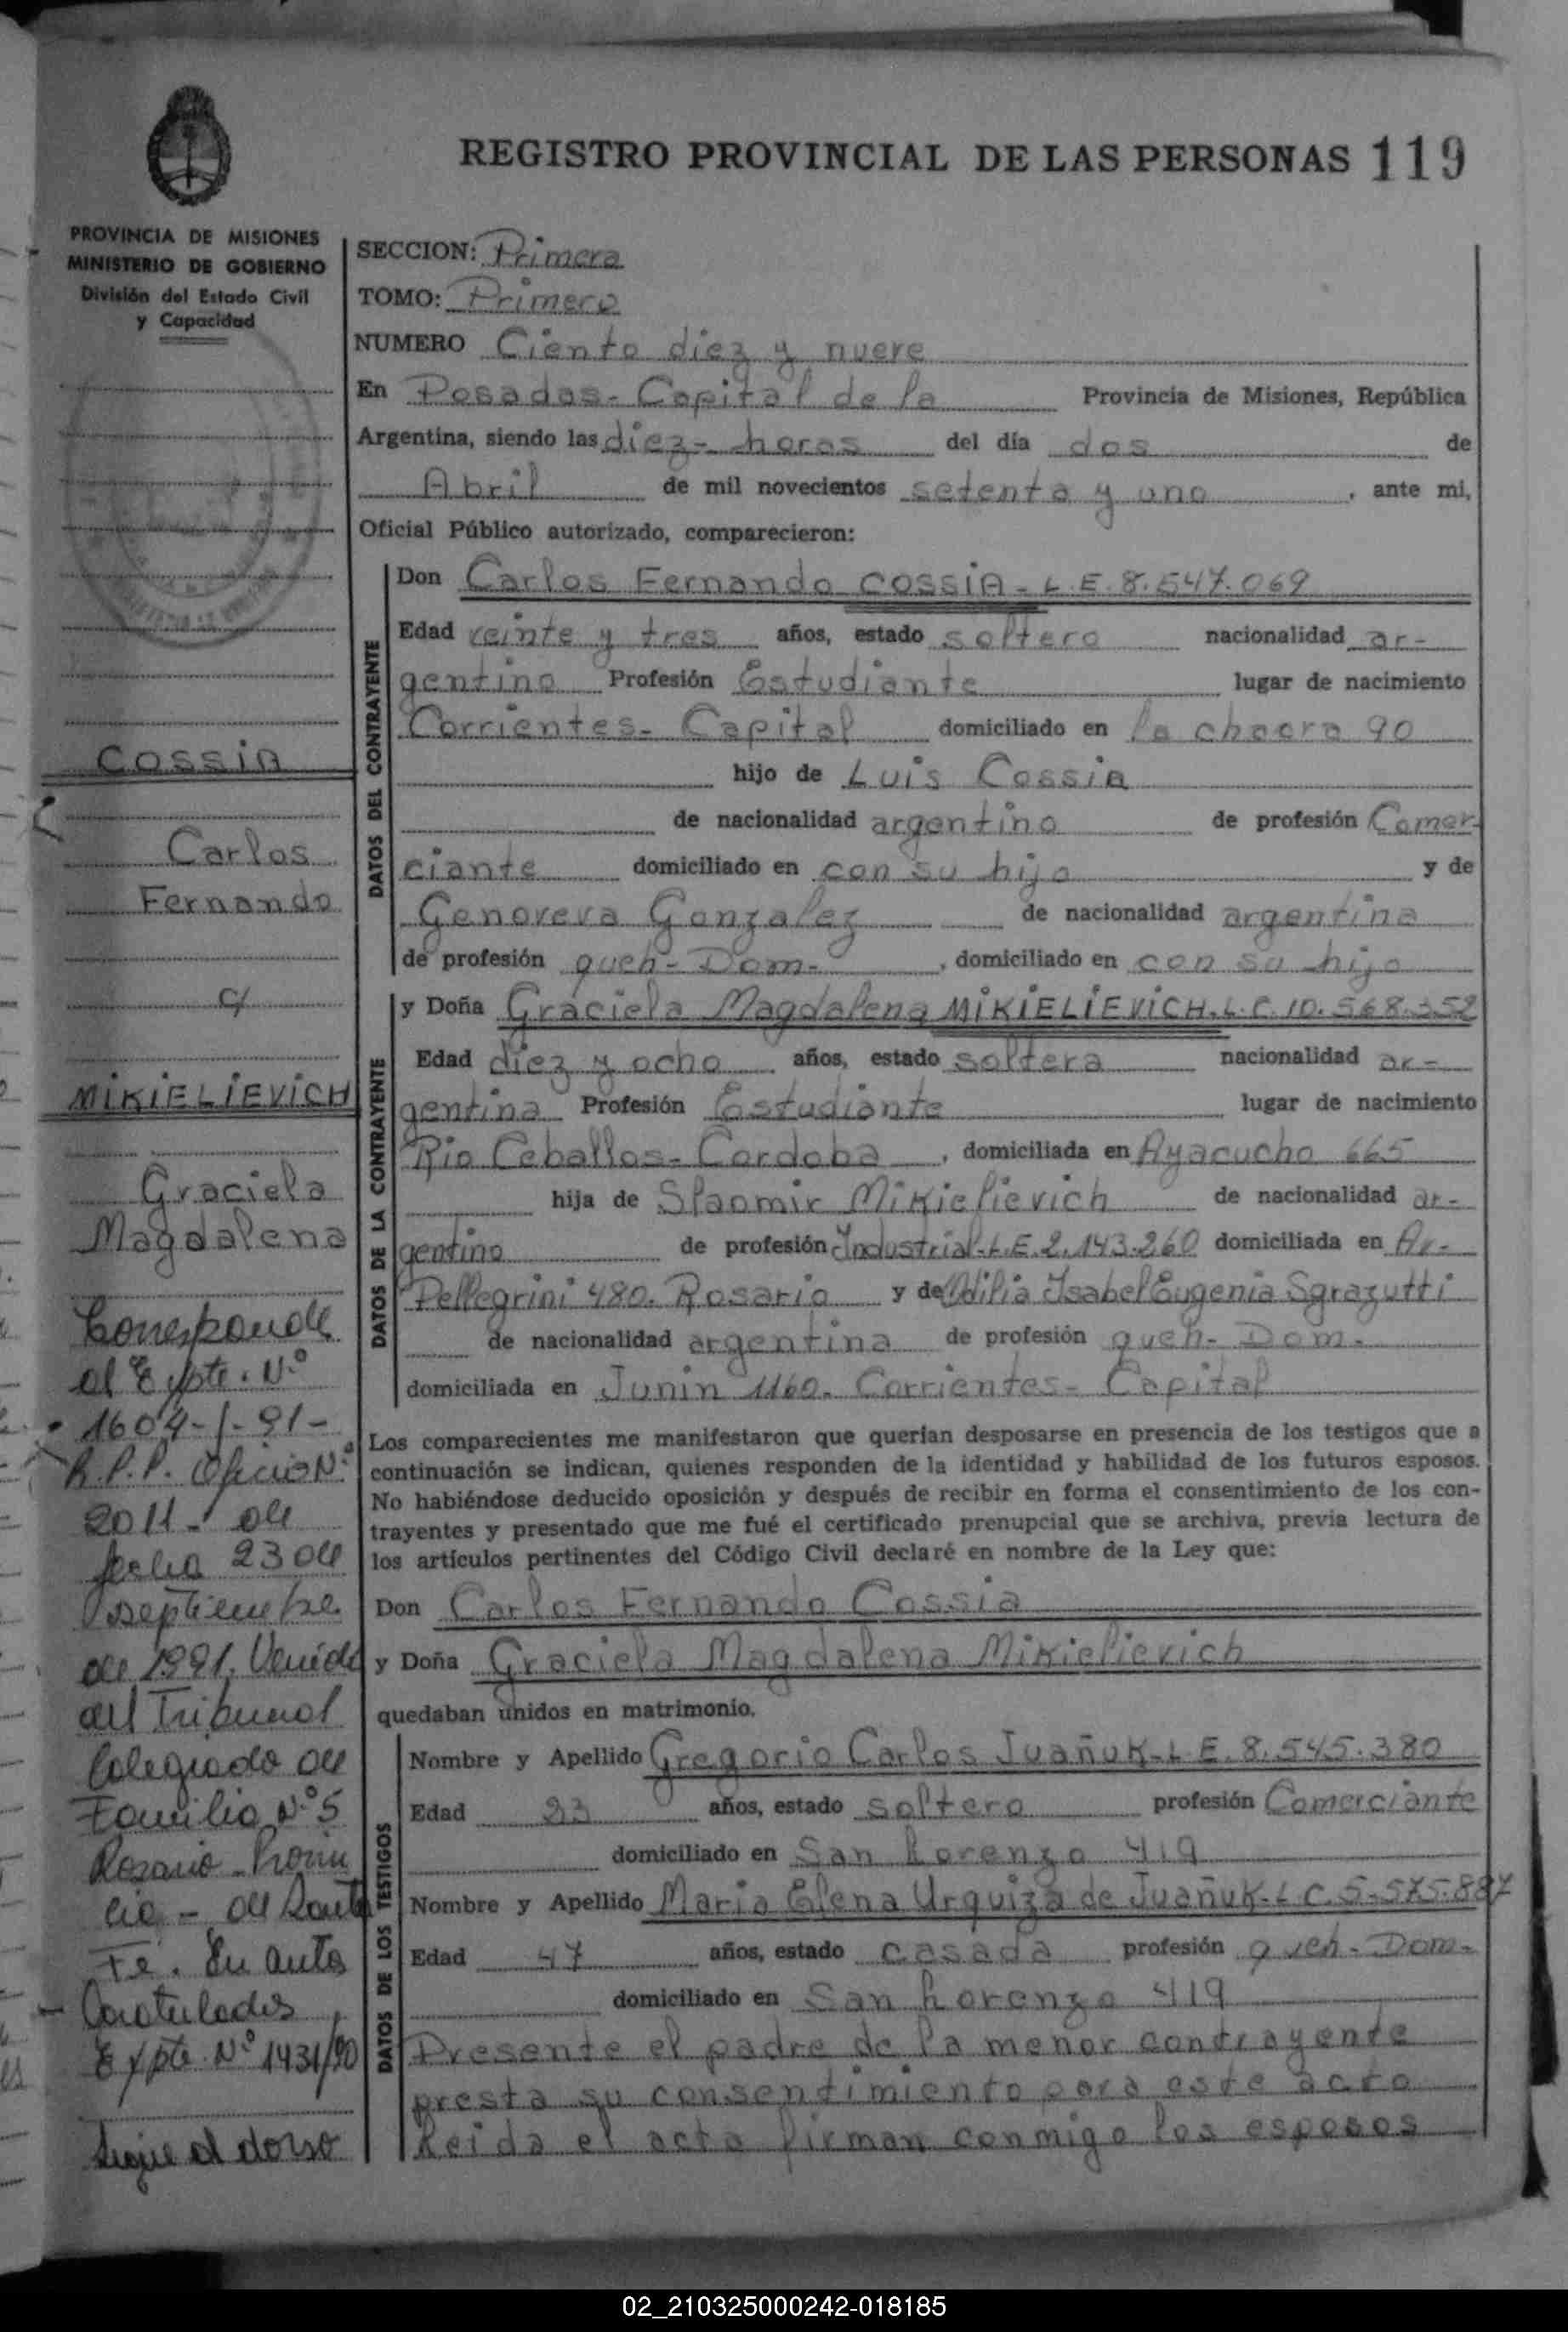 REGISTRO PROVINCIAL DE LAS PERSONAS 119
PROVINCIA DE MISIONES
MINISTERIO DE GOBIERNO
División del Estado Civil
y Capacidad
COSSIA
Carlos
Fernando
c/
MIKIELIEVICH
Graciela
Magdalena
Corresponde
al Expte. Nº
1604-1-91-
R.P.P. Oficio Nº
2011- de
fecha 23 de
septiembre
de 1991. Venido
del Tribunal
Colegiado de
Familia Nº 5
Rosario Provin
cia - de Santa
Fé. En autos
Caratulados
Expte. Nº 1431/90
Sigue al dorso
SECCION: Primera
TOMO: Primero
NUMERO Ciento diez y nueve
En Posadas- Capital de la Provincia de Misiones, República
Argentina, siendo las diez- horas del día dos de
Abril de mil novecientos setenta y uno, ante mi,
Oficial Público autorizado, comparecieron:
DATOS DEL CONTRAYENTE
Don Carlos Fernando COSSIA- L.E. 8.547.069
Edad veinte y tres años, estado soltero nacionalidad ar-
gentino Profesión Estudiante lugar de nacimiento
Corrientes- Capital domiciliado en la chacra 90
hijo de Luis Cossia
de nacionalidad argentino de profesión Comer-
ciante domiciliado en con su hijo y de
Genoveva Gonzalez de nacionalidad argentina
de profesión queh- Dom-, domiciliado en con su hijo
DATOS DE LA CONTRAYENTE
y Doña Graciela Magdalena MIKIELIEVICH- L.C. 10.568.352
Edad diez y ocho años, estado soltera nacionalidad ar-
gentina Profesión Estudiante lugar de nacimiento
Rio Ceballos- Cordoba, domiciliada en Ayacucho 665
hija de Slaomir Mikielievich de nacionalidad ar-
gentino de profesión Industrial-L.E. 2.143.260 domiciliada en Av-
Pellegrini 480. Rosario y de Odilia Isabel Eugenia Sgrazutti
de nacionalidad argentina de profesión queh- Dom-
domiciliada en Junin 1160- Corrientes- Capital
Los comparecientes me manifestaron que querían desposarse en presencia de los testigos que a
continuación se indican, quienes responden de la identidad y habilidad de los futuros esposos.
No habiéndose deducido oposición y después de recibir en forma el consentimiento de los con-
trayentes y presentado que me fué el certificado prenupcial que se archiva, previa lectura de
los artículos pertinentes del Código Civil declaré en nombre de la Ley que:
Don Carlos Fernando Cossia
y Doña Graciela Magdalena Mikielievich
quedaban unidos en matrimonio.
DATOS DE LOS TESTIGOS
Nombre y Apellido Gregorio Carlos Juañuk-L.E. 8.545.380
Edad 23 años, estado soltero profesión Comerciante
domiciliado en San Lorenzo 419
Nombre y Apellido Maria Elena Urquiza de Juañuk-L.C. 5.575.887
Edad 47 años, estado casada profesión queh- Dom-
domiciliado en San Lorenzo 419
Presente el padre de la menor contrayente
presta su consentimiento para este acto
Leida el acta firman conmigo los esposos
02_210325000242-018185